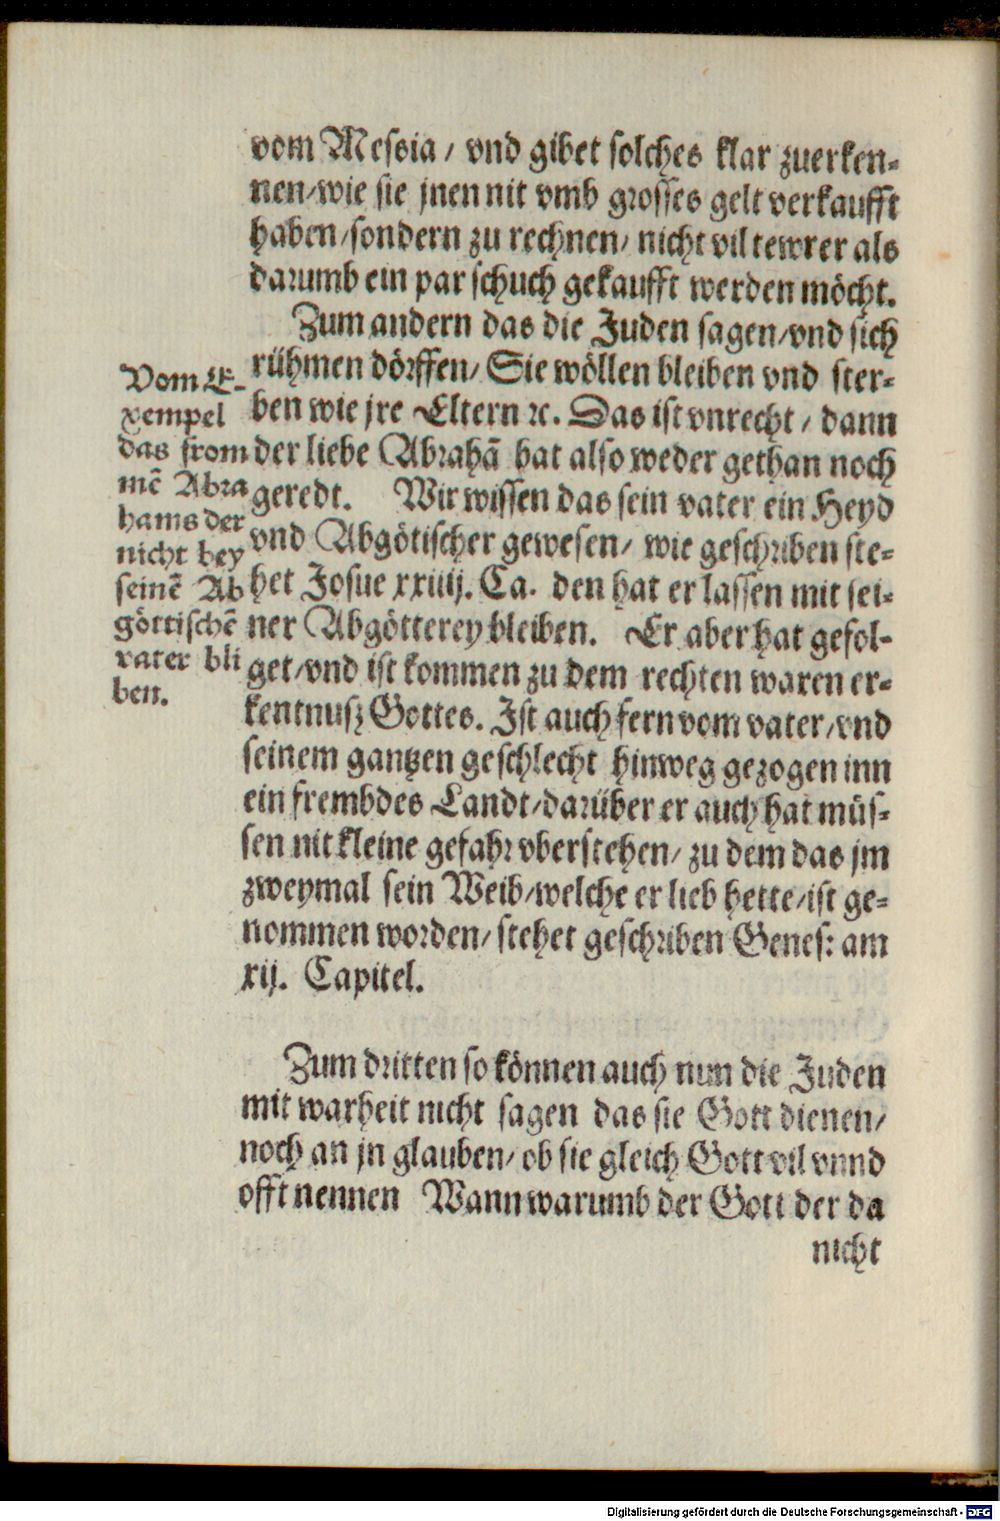 vom Messia / vnd gibet solches klar zuerken-
nen/wie sie jnen nit vmb grosses gelt verkaufft
haben/sondern zu rechnen/ nicht vil tewrer als
darumb ein par schuch gekaufft werden möcht.
Zum andern das die Juden sagen/vnd sich
rühmen dörffen/ Sie wöllen bleiben vnd ster-
ben wie jre Eltern ꝛc. Das ist vnrecht / dann
der liebe Abrahã hat also weder gethan noch
geredt. Wir wissen das sein vater ein Heyd
vnd Abgötischer gewesen/ wie geschriben ste-
het Josue xxiiij. Ca. den hat er lassen mit sei-
ner Abgötterey bleiben. Er aber hat gefol-
get/vnd ist kommen zu dem rechten waren er-
kentnusz Gottes. Ist auch fern vom vater/vnd
seinem gantzen geschlecht hinweg gezogen inn
ein frembdes Landt/darüber er auch hat müs-
sen nit kleine gefahr vberstehen/ zu dem das jm
zweymal sein Weib/welche er lieb hette/ist ge-
nommen worden/ stehet geschriben Genes: am
xij. Capitel.
Vom E-
xempel
das from
mẽ Abra
hams der
nicht bey
seinẽ Ab
göttischẽ
vater bli
ben.
Zum dritten so können auch nun die Juden
mit warheit nicht sagen das sie Gott dienen/
noch an jn glauben/ ob sie gleich Gott vil vnnd
offt nennen Wann warumb der Gott der da
nicht
Digitalisierung gefördert durch die Deutsche Forschungsgemeinschaft - DFG